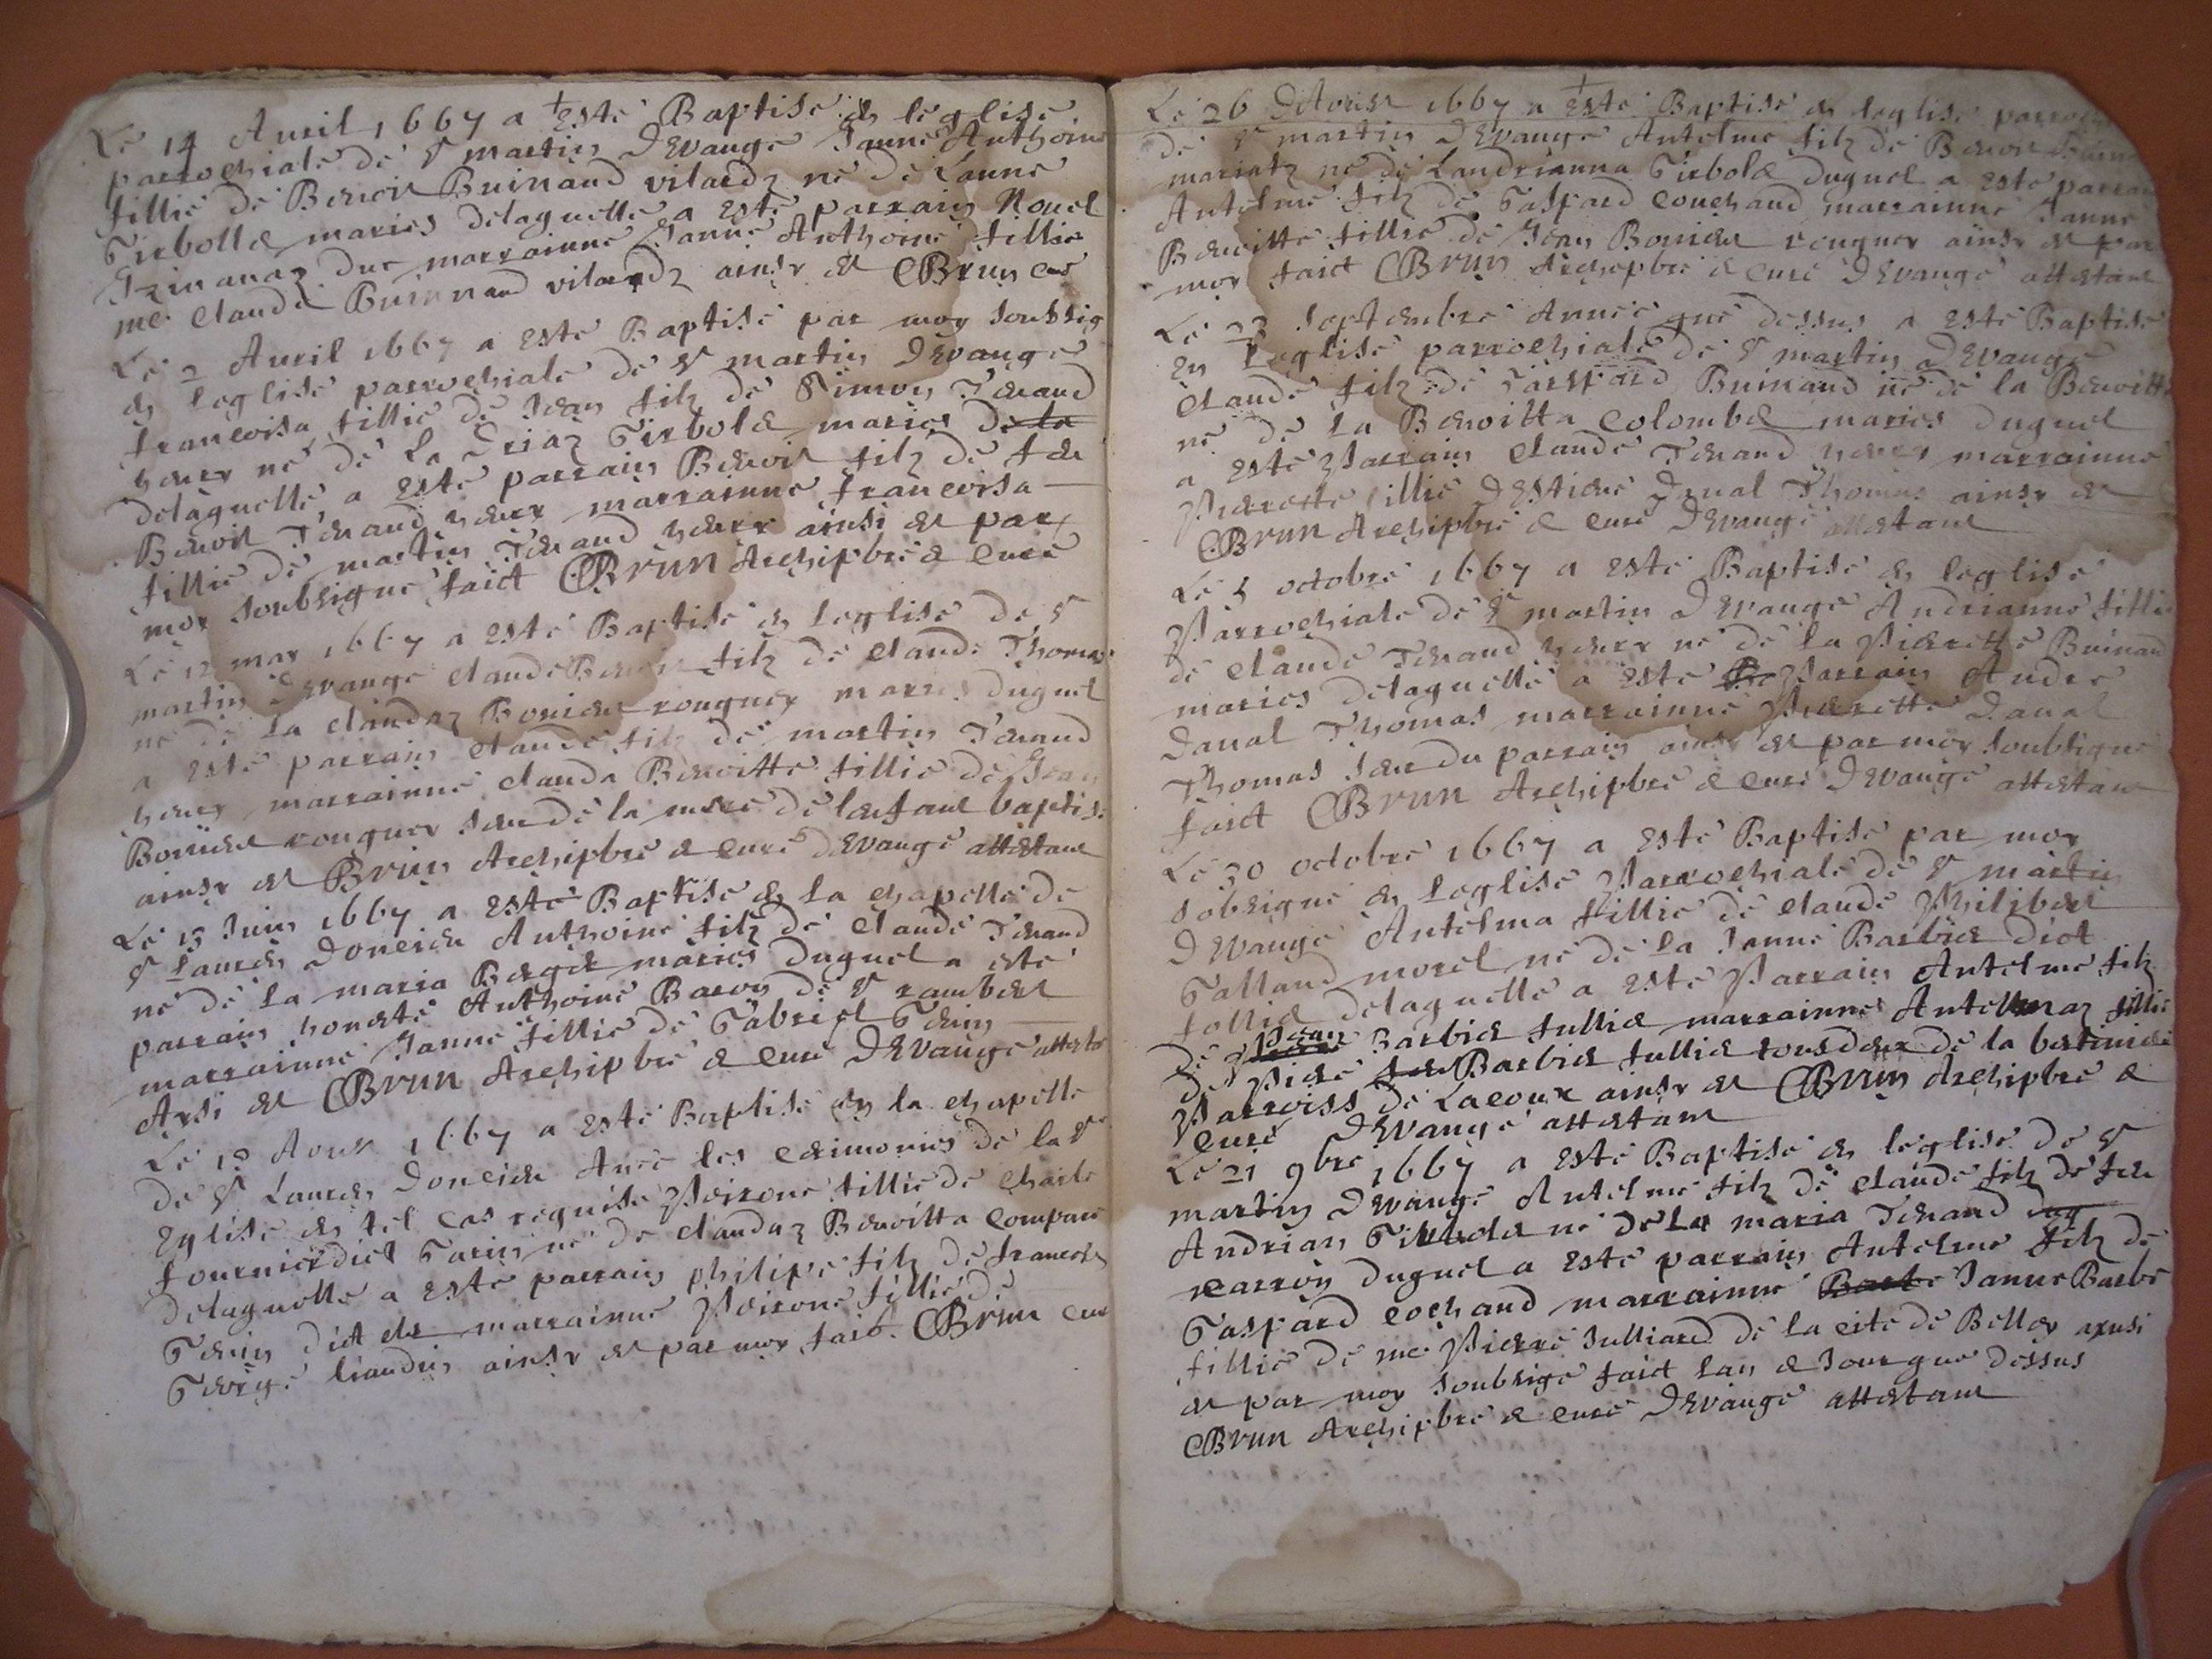 Le 14 Auril 1667 a este Baptise en leglise
parrochiale de St martin Devauge Janne Anthoine
fillie de Benoit Buinand vilardz ne de Lanne
Girbolle maries delaquelle a este parrain Nouel
duc marrainne Janne Anthoine fillie
me Claude Buinnand vilardz ainsy est CBrun cure
Le 2 Auril 1667 a este Baptise par moy soubsig
en leglise parrochiale de St martin Devauge
francoisa fillie de Jean filz de Simon Tenand
henry ne de La Driaz Girbole maries de la
delaquelle a este parrain Benoit filz de feu
Benoit Tenand henry marrainne francoisa
fillie de martin Tenand henry ainsi est par
moy soubsigne faict CBrun Archipbre & cure
Le 12 may 1667 a este Baptise en leglise de St
martin Devauge claude Benoit filz de claude Thomas
ne de La claudaz Bonidel rougney maries duquel
a este parrain claude filz de martin Tenand
henry marrainne clauda Benoitte fillie de Jean
rougney seur de la mere de lenfant baptise
ainsy est Brun Archipbre & cure Devauge attestant
Le 13 Juin 1667 a este Baptise en la chapelle de
St Laurens Doncieu Anthoine filz de Claude Tenand
ne de la maria Berger maries duquel a este
parrain honeste Anthoine Baron de St rambert
marrainne Janne fillie de Gabriel Genin
Aysi est CBrun Archipbre & cure Devauge attestant
Le 18 Aoust 1667 a este Baptise en la chapelle
de St Laurens Doncieu Auec les cerimonies de la Ste
Eglise en tel cas requise Peirone fillie de Charle
fournier dict Garin ne de claudaz Benoitta compare
delaquelle a este parrain philipe filz de francois
Genin dict marrainne Peirone fillie de
George liaudin ainsy est par moy faict CBrun cure
Le 26 Daoust 1667 a este Baptise en leglise parroch
de St martin Devauge Antelme filz de Benoit
mariatz ne de Landrianna Girbole duquel a este parrain
Antelme filz de Gaspard couchaud marrainne Janne
Benoitte fillie de Jean Bonidel rougney ainsy est par
moy faict CBrun Archipbre & cure Devauge attestant
Le 23 Septembre Annee que dessus a este Baptise
en Leglise parrochiale de St martin Devauge
claude filz de Gaspard Buinand ne de la Benoitta
ne de la Benoitta Colombe maries duquel
a este Parrain claude Tenand henry marrainne
Pierrette fillie Destiene Danal Thomas ainsy est
CBrun Archipbre & cure Devauge attestant
Le 5 octobre 1667 a este Baptise en leglise
Parrochiale de St martin Devauge Andrianne fillie
de claude Tenand henry ne de la Pierrette Buinand
maries delaquelle a este Parrain Andre
Danal Thomas marrainne Pierrette Danal
Thomas seur du parrain ainsy est par moy soubsigne
faict CBrun Archipbre & cure Devauge attestant
Le 30 octobre 1667 a este Baptise par moy
sobsigne en Leglise Parrochiale de St martin
Devauge Antelma fillie de claude Philibert
Galland morel ne de la Janne Barbier dict
follie delaquelle a este Parrain Antelme filz
de Jean Barbier fullie marrainne Antelmaz fillie
de Piere Barbier fullie tous deux de la bertiniere
Parroiss de Lacoux ainsy est CBrun Archipbre &
cure Devauge attestant
Le 21 9bre 1667 a este Baptise en leglise de St
martin Devauge Antelme filz de claude filz de feu
Andrian Girbole ne de La maria Tenand duq
carron duquel a este parrain Antelme filz de
Gaspard cochaud marrainne Barbe Janne Barbe
fillie de me Pierre Julliard de la cite de Belley aynsi
est par moy soubsige faict Lan & Jour que dessus
CBrun Archipbre & cure Devauge attestant